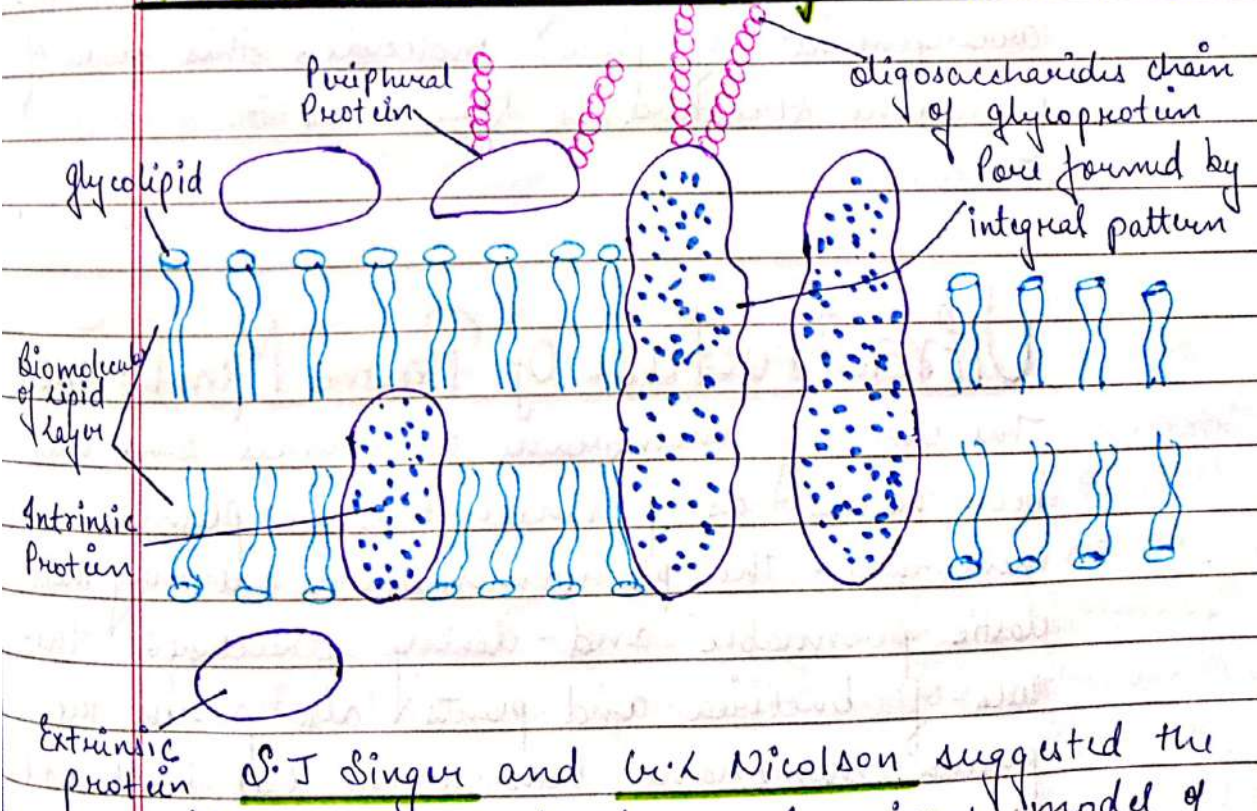 Peripheral
Protein
oligosaccharides chain
of glycoprotein
glycolipid
Pore formed by
integral pattern
Biomolecular
of Lipid
Layer
Intrinsic
Protein
Extrinsic
protein
S.J Singer and G.L Nicolson suggested the
model of